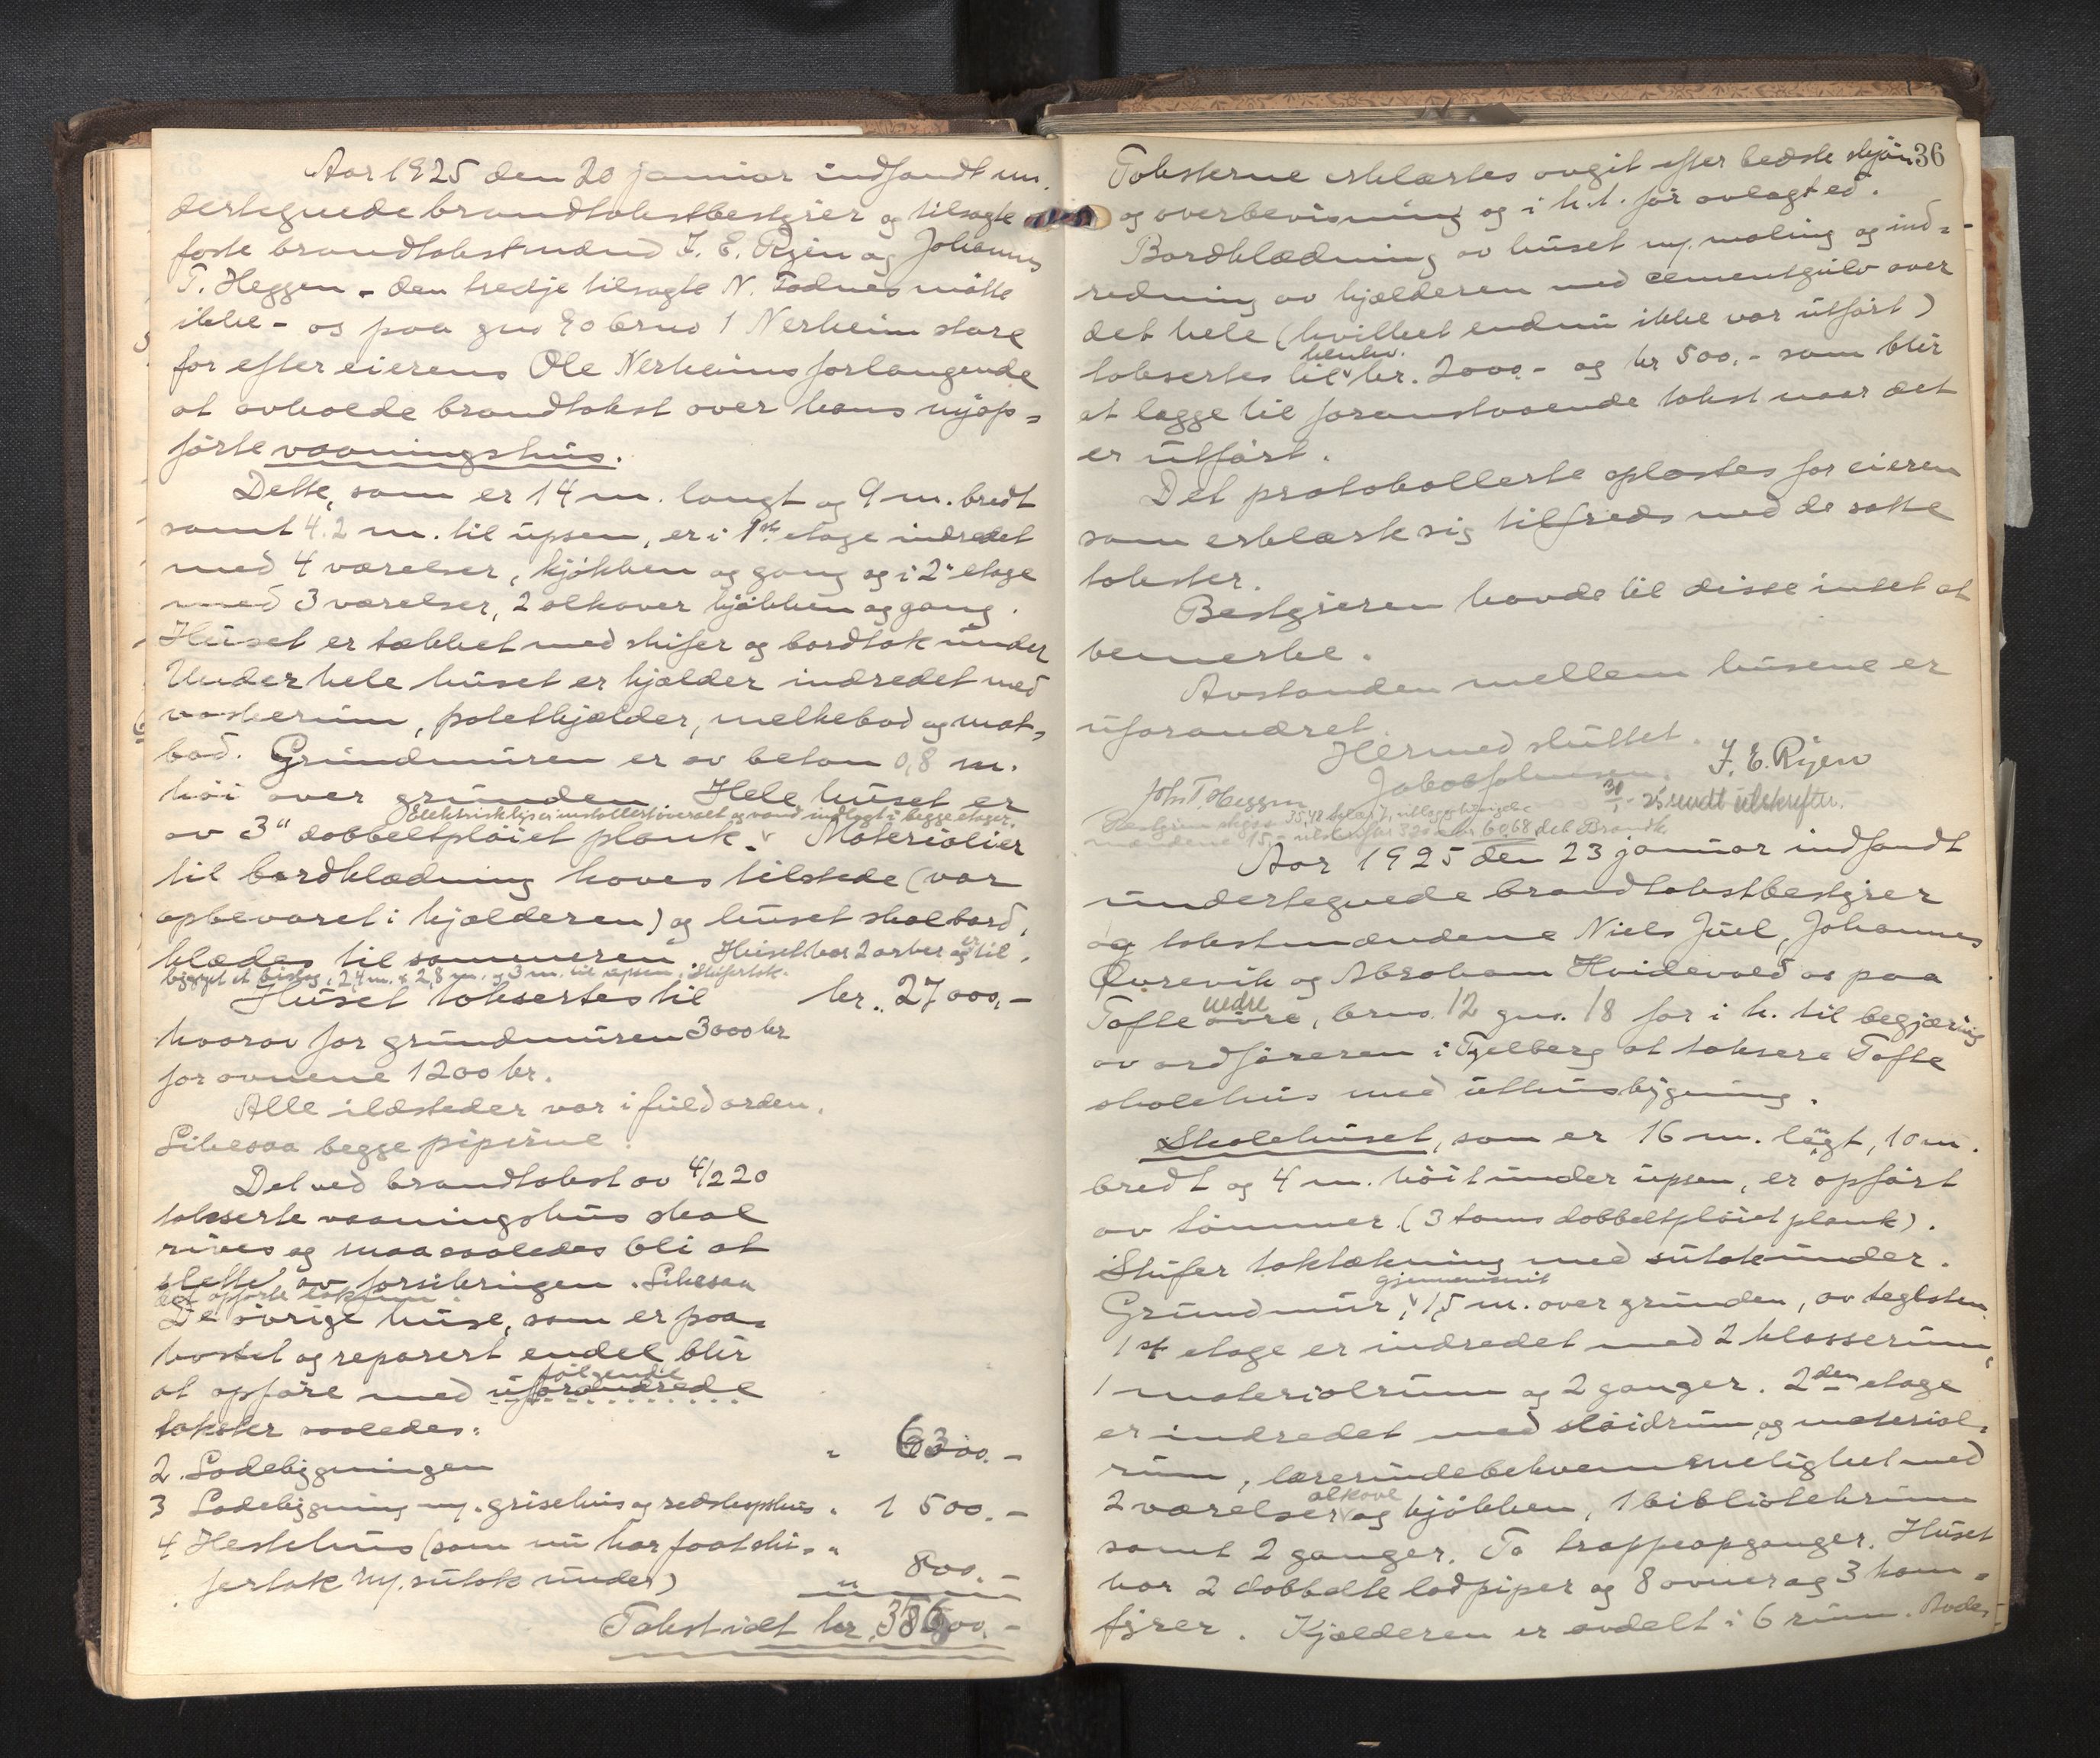 Aar 1925 den 20 januar indfandt un-
dertegnede brandtakstbestyrer og tilsagte
faste brandtakstmænd I. E. Ryen og Johannes
T. Heggen - den tredje tilsagte N. Fadnes møtte
ikke - os paa gno 90 brno 1 Nerheim store
for efter eierens Ole Nerheims forlangende
at avholde brandtakst over hans nyop=
førte vaaningshus.
Dette, som er 14 m. langt og 9 m. bredt
samt 4.2 m. til upsen, er i 1ste etage indredet
med 4 værelser, kjøkken og gang og i 2" etage
med 3 værelser, 2 alkover kjøkken og gang.
Huset er tækket med skifer og bordtak under
Under hele huset er kjælder indredet med
vaskerum, potetkjælder, melkebod og mat=
bod. Grundmuren er av beton 0,8 m.
høi over grunden. Hele huset er
Elektrisk lys er installert overalt og vand indlagt i begge etager.
av 3" dobbeltpløiet plank. v Materialier
til bordklædning haves tilstede (var
opbevaret i kjælderen) og huset skal bord=
klædes til sommeren. Huset har 2 arker og er til=
bygget et bislag, 2,4 m. x 2,8 m. og 3 m. til upsen. Skifertak.
Huset taksertes til kr. 27000,-
hvorav for grundmuren 3000 kr
for ovnene 1200 kr.
Alle ildsteder var i fuld orden.
Likesaa begge piperne.
Det ved brandtakst av 4/2 20
takserte vaaningshus skal
rives og maa saaledes bli at
slette av forsikringen. Likesaa
det opførte
De øvrige huse, som er paa=
kostet og reparert endel blir
at opføre med uforandrede
følgende
takster saaledes:
2. Ladebygningen " 6300.-
3 Ladebygning m/. grisehus og redskapshus " 1 500.-
4 Hestehus (som nu har faat ski= "
fertak m/. sutak under) 800.-
Takst ialt kr. 35600.-
36
Taksterne erklærtes avgit efter bedste skjøn
og overbevisning og i h.t. før avlagt ed.
Bordklædning av huset m/. maling og ind=
redning av kjælderen med cementgulv over
det hele (hvilket endnu ikke var utført)
taksertes til v kr. 2000.- og kr 500.- som blir
henhv.
at lægge til foranstaaende takst naar det
er utført.
Det protokollerte oplæstes for eieren
som erklærte sig tilfreds med de satte
takster.
Bestyreren havde til disse intet at
bemerke.
Avstanden mellem husene er
uforandret.
Hermed sluttet.
Jakob Johnsen. I. E. Ryen
Johs T. Heggen 30/1-25 sendt utskrifter.
Aar 1925 den 23 januar indfandt
undertegnede brandtakstbestyrer
og takstmændene Niels Juel, Johannes
Øvrevik og Abraham Hvidevold os paa
Tofte øvre, brno. 12 gno. 18 for i h. til begjæring
nedre
av ordføreren i Fjelberg at taksere Tofte
skolehus med uthusbygning.
Skolehuset, som er 16 m. langt, 10 m.
bredt og 4 m. høit under upsen, er opført
av tømmer. (3 toms dobbeltpløiet plank).
Skifer taktækning med sutak under.
Grundmur, v 1,5 m. over grunden, av teglsten
gjennemsnit
1ste etage er indredet med 2 klasserum,
1 materialrum og 2 ganger. 2den etage
er indredet med sløidrum, og material=
rum, lærerindebekvemmelighet med
2 værelser v og kjøkken, 1 bibliotekrum
alkove
samt 2 ganger. To trappeopganger. Huset
har 2 dobbelte lodpiper og 8 ovner og 3 kom=
fyrer. Kjælderen er avdelt i 6 rum. Avdel=